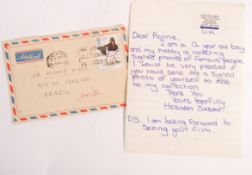 Air Mail
MR RONNIE BIGGS
RIO DE JANEIRO
BRAZIL
U.K.
Dear Ronnie,
I am a 12 year old boy
and my hobby is collecting
signed photos of famous people.
I would be very pleased if
you could send me a signed
photo of yourself to add
to my collection.
Thank you
Yours hopefully
P.S. I am looking forward to
seeing your film.